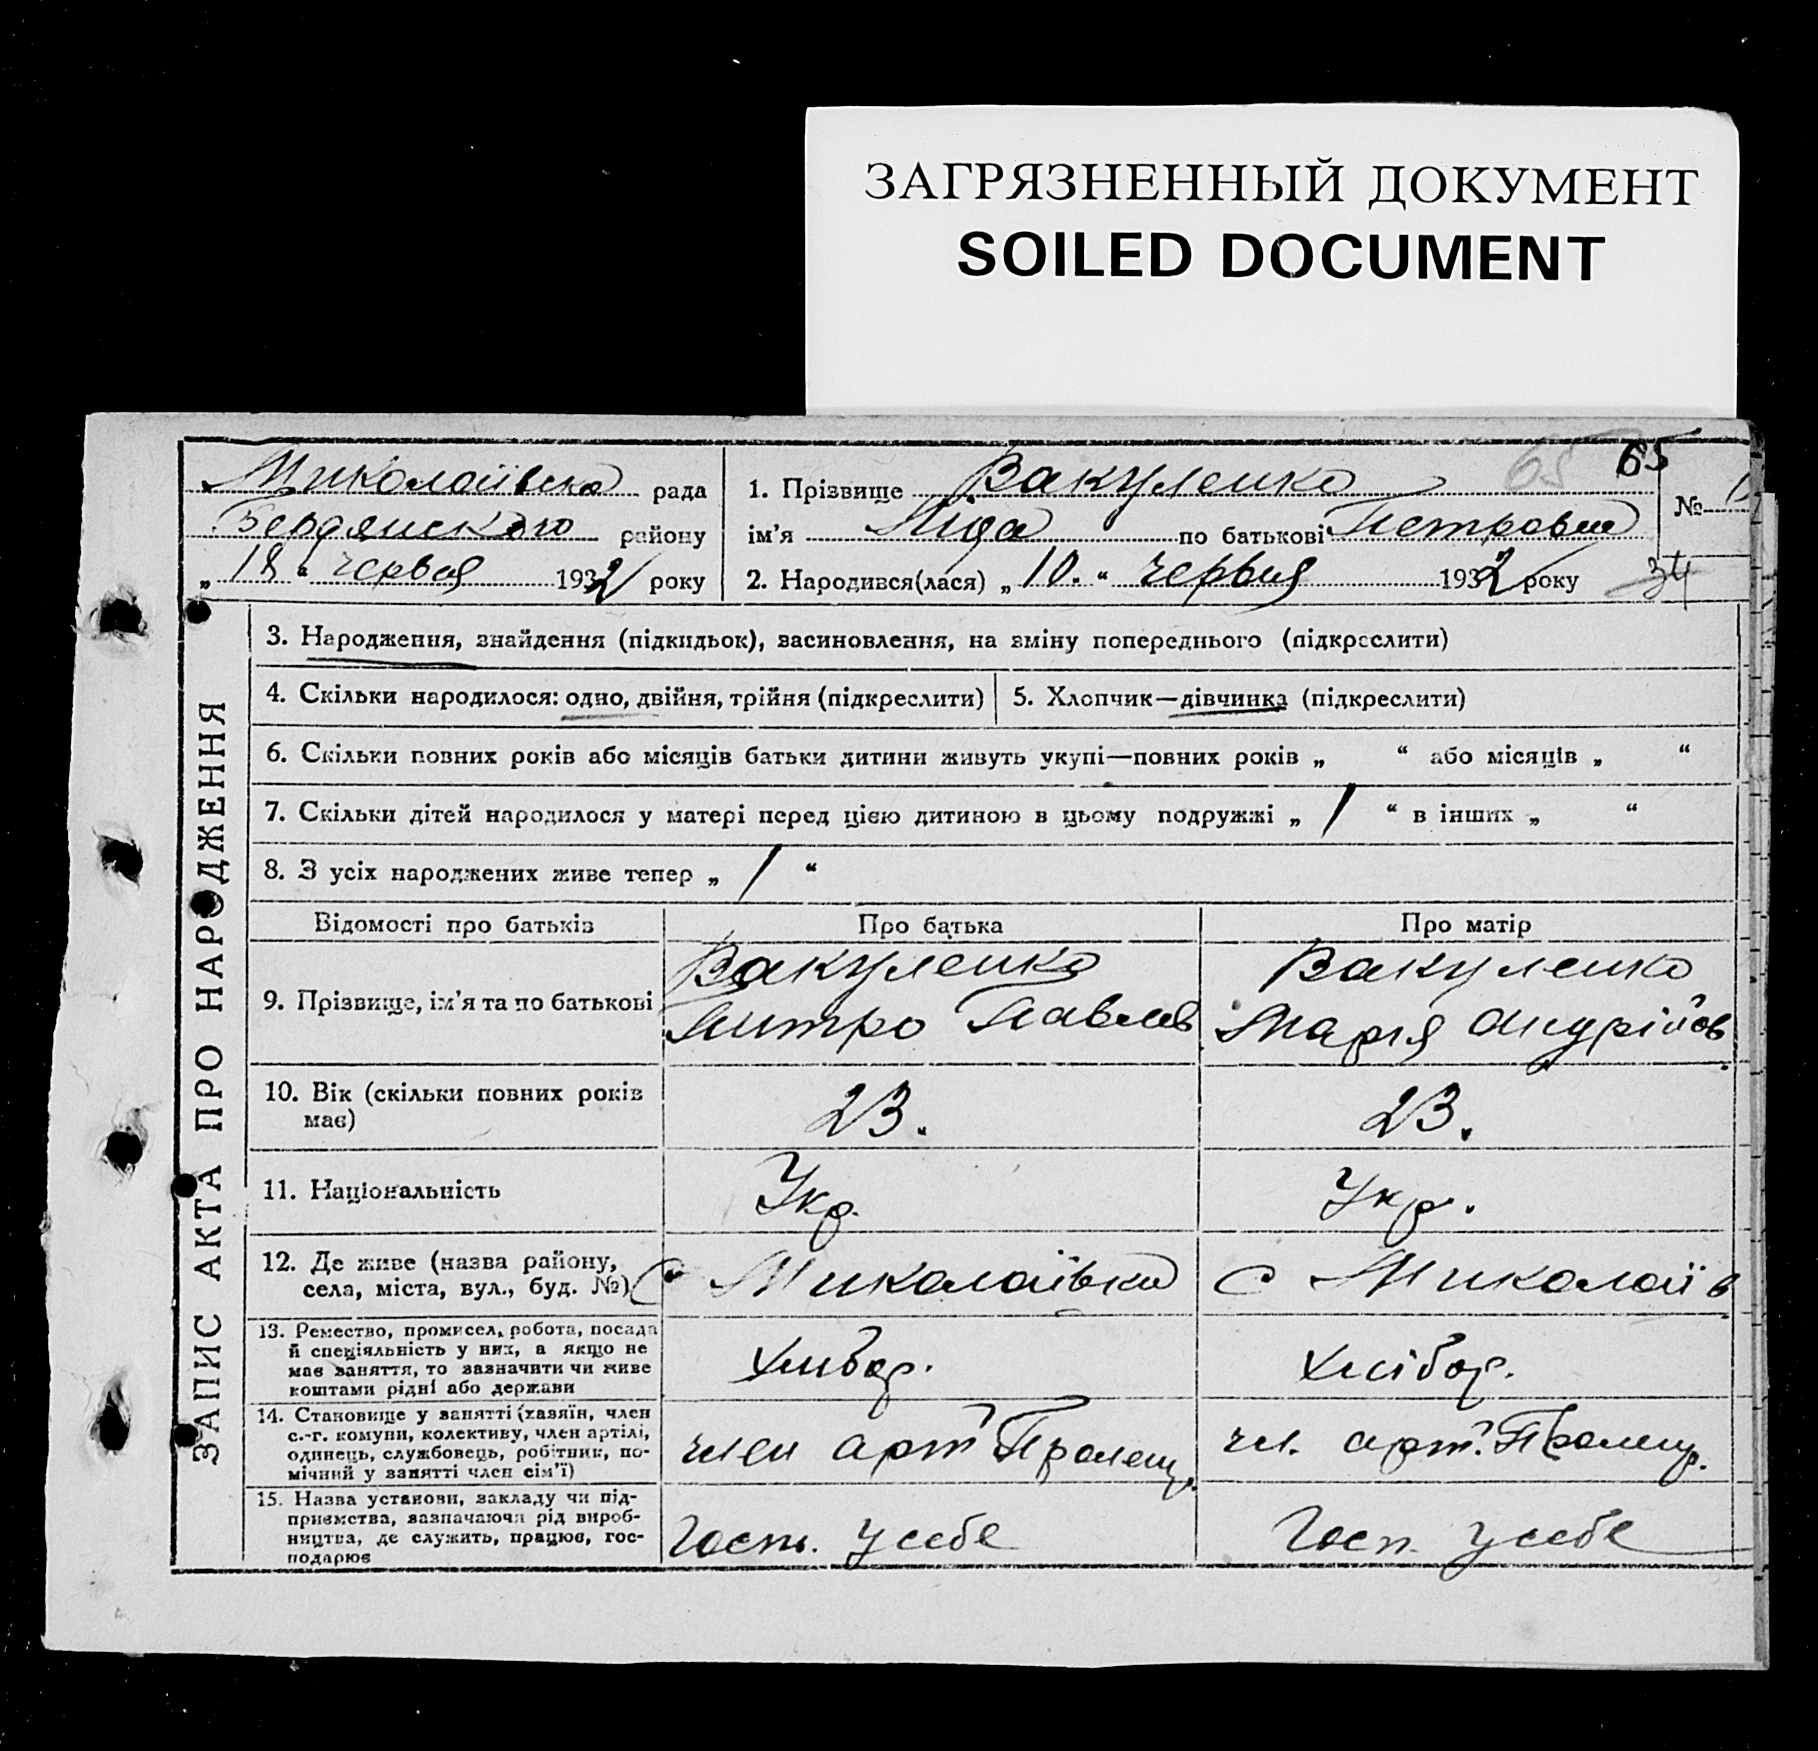 ЗАГРЯЗНЕННЫЙ ДОКУМЕНТ
SOILED DOCUMENT
65 65
Миколаївська рада
Бердянского району
„ 18 “ червня 1932 року
1. Прізвище Вакуленко
ім’я Ліда по батькові Петровна
№
2. Народився(лася) „ 10. “ червня 1932 року
34
ЗАПИС АКТА ПРО НАРОДЖЕННЯ
3. Народження, знайдення (підкидьок), засиновлення, на зміну попереднього (підкреслити)
4. Скільки народилося: одно, двійня, трійня (підкреслити)
5. Хлопчик—дівчинка (підкреслити)
6. Скільки повних років або місяців батьки дитини живуть укупі—повних років „ “ або місяців „ “
7. Скільки дітей народилося у матері перед цією дитиною в цьому подружжі „ / “ в інших „ “
8. З усіх народжених живе тепер „ / “
Відомості про батьків
Про батька
Про матір
9. Прізвище, ім’я та по батькові
Вакуленко
Павлов
Вакуленко
Марія Андрійов
10. Вік (скільки повних років
має)
23.
23.
11. Національність
Укр.
Укр.
12. Де живе (назва району,
села, міста, вул., буд. №)
с Миколаївка
с Миколаїв
13. Ремество, промисел, робота, посада
й спеціяльність у них, а якщо не
має заняття, то зазначити чи живе
коштами рідні або держави
Хлібор.
Хлібор.
14. Становище у занятті (хазяїн, член
с.-г. комуни, колективу, член артілі,
одинець, службовець, робітник, по-
мічний у занятті член сім’ї)
член арт Пролет.
чл. арт. Пролет.
15. Назва установи, закладу чи під-
приємства, зазначаючи рід вироб-
ництва, де служить, працює, гос-
подарює
Госп. у себе
Госп. у себе